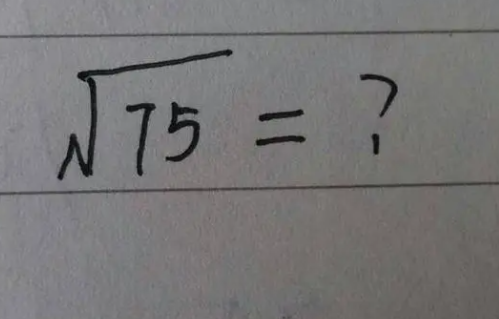 √75 = ?